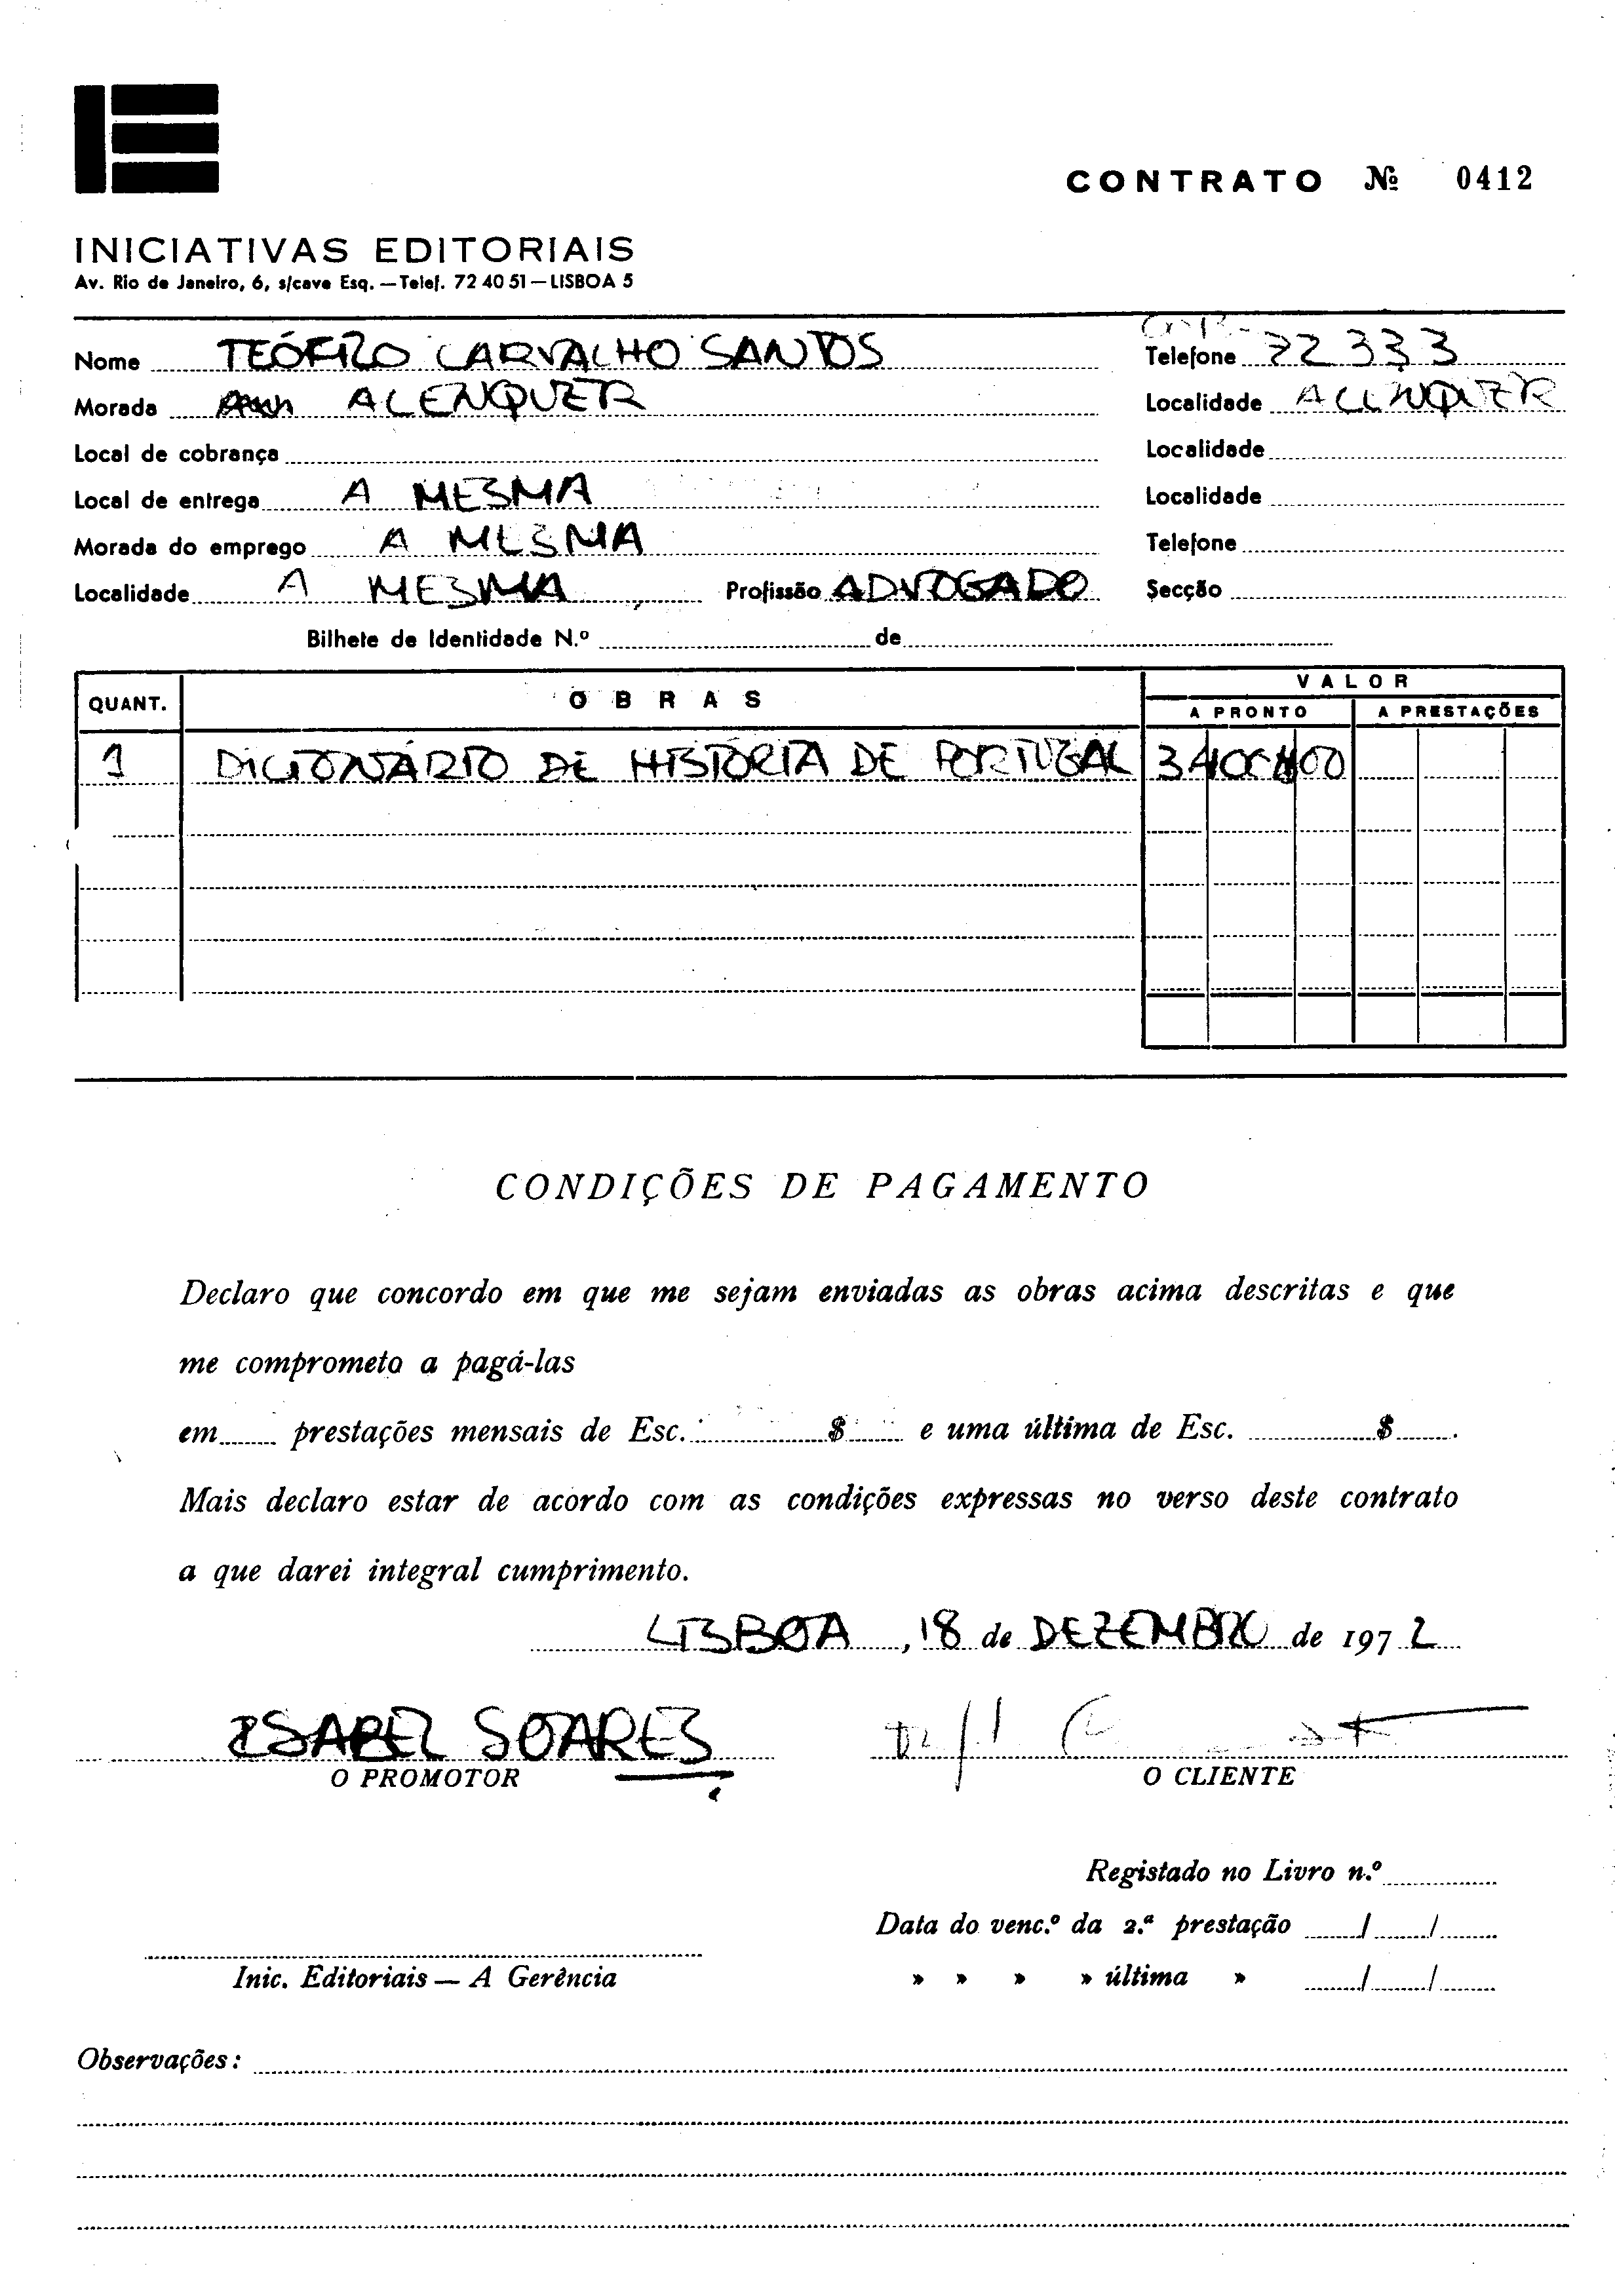 CONTRATO Nº 0412
INICIATIVAS EDITORIAIS
Av. Rio de Janeiro, 6, s/cave Esq. — Telef. 72 40 51 — LISBOA 5
Nome TEÓFILO CARVALHO SANTOS Telefone 72333
Morada ALENQUER Localidade ALENQUER
Local de cobrança Localidade
Local de entrega A MESMA Localidade
Morada do emprego A MESMA Telefone
Localidade A MESMA Profissão ADVOGADO Secção
Bilhete de Identidade N.º de
QUANT. OBRAS VALOR
A PRONTO A PRESTAÇÕES
1 DICIONÁRIO DE HISTÓRIA DE PORTUGAL 3400$00
CONDIÇÕES DE PAGAMENTO
Declaro que concordo em que me sejam enviadas as obras acima descritas e que
me comprometo a pagá-las
em prestações mensais de Esc. $ e uma última de Esc. $ .
Mais declaro estar de acordo com as condições expressas no verso deste contrato
a que darei integral cumprimento.
LISBOA, 18 de DEZEMBRO de 1972
ISABEL SOARES
O PROMOTOR O CLIENTE
Registado no Livro n.º
Data do venc.º da 2.ª prestação / /
Inic. Editoriais — A Gerência » » » » última » / /
Observações: